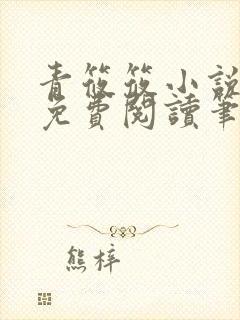 青筱筱小說
免費閱讀筆
熊梓